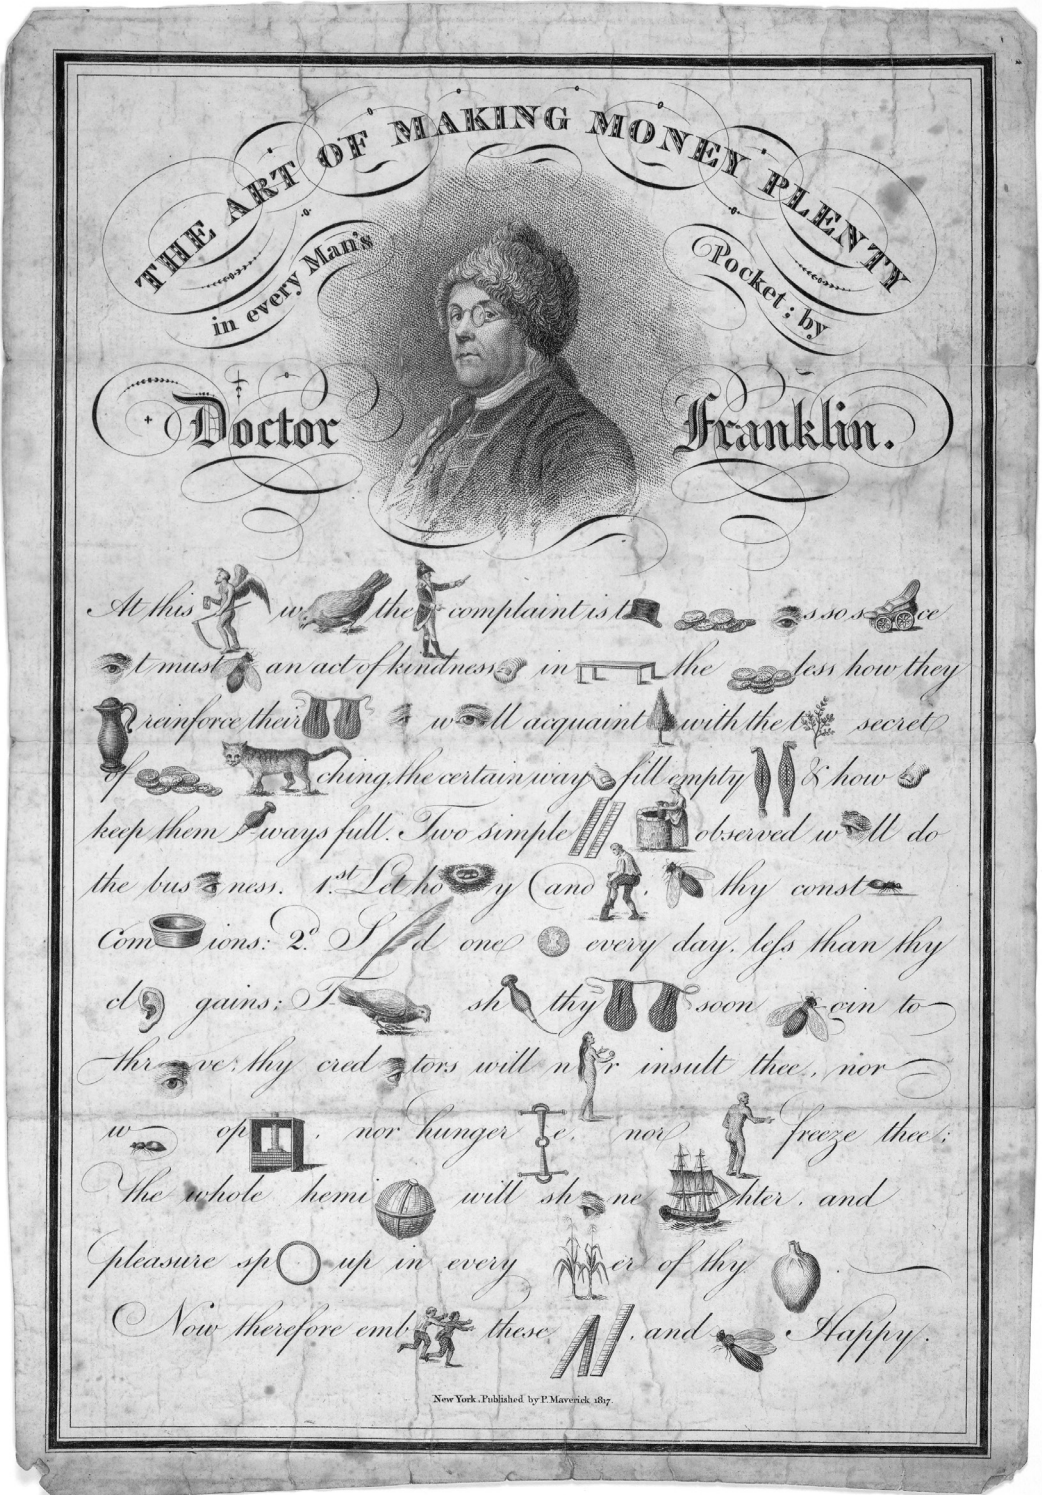 THE ART OF MAKING MONEY PLENTY
in every Man's Pocket; by
Doctor Franklin.
At this w the complaint is t s so s ce
t must an act of kindness in the less how they
reinforce their w ll acquaint with the t secret
of ching, the certain way fill empty & how
keep them ways full. Two simple observed w ll do
the bus ness. 1st Let ho y (and , thy const
Com ions: 2d S d one every day, less than thy
cl gains; T sh thy soon oin to
thr ve: thy cred tors will n r insult thee, nor
w op , nor hunger e, nor freeze thee;
The whole hemi will sh ne hter, and
pleasure sp up in every er of thy .
Now therefore emb these , and Happy.
New York. Published by P. Maverick, 1817.